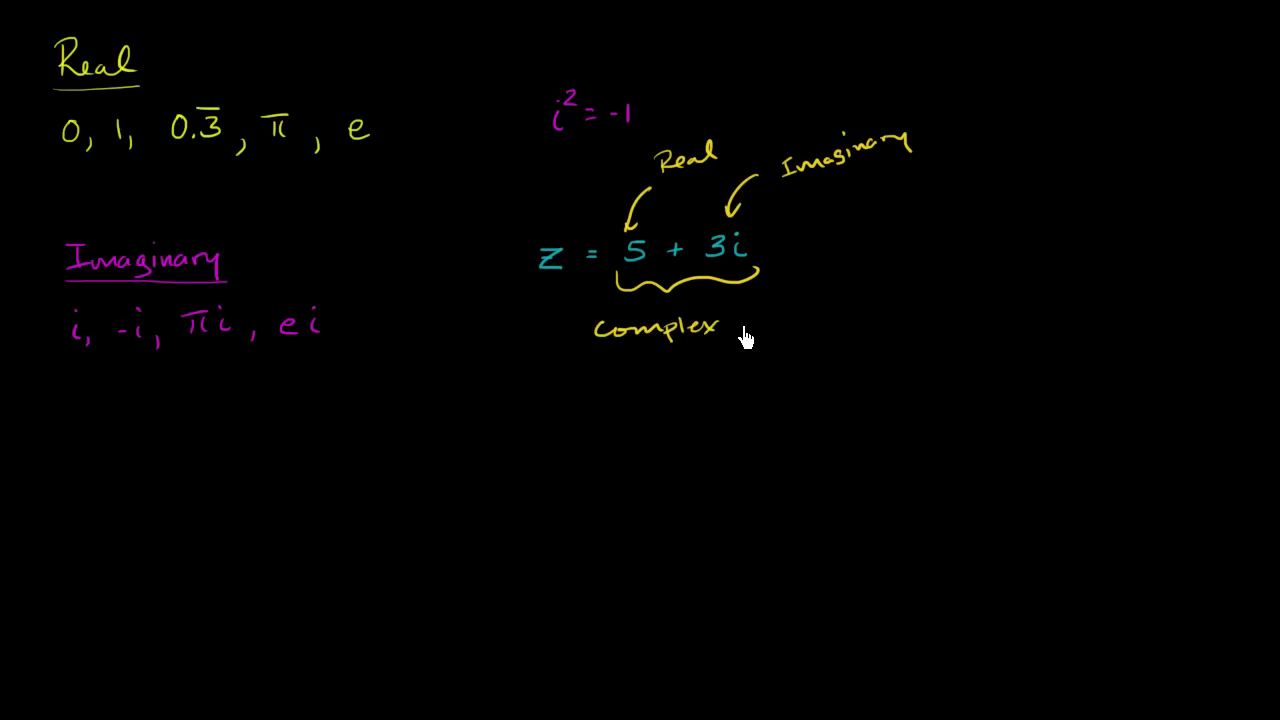 Real
0, 1, 0.3̅, π, e
Imaginary
i, -i, πi, ei
i² = -1
Real
Imaginary
z = 5 + 3i
Complex